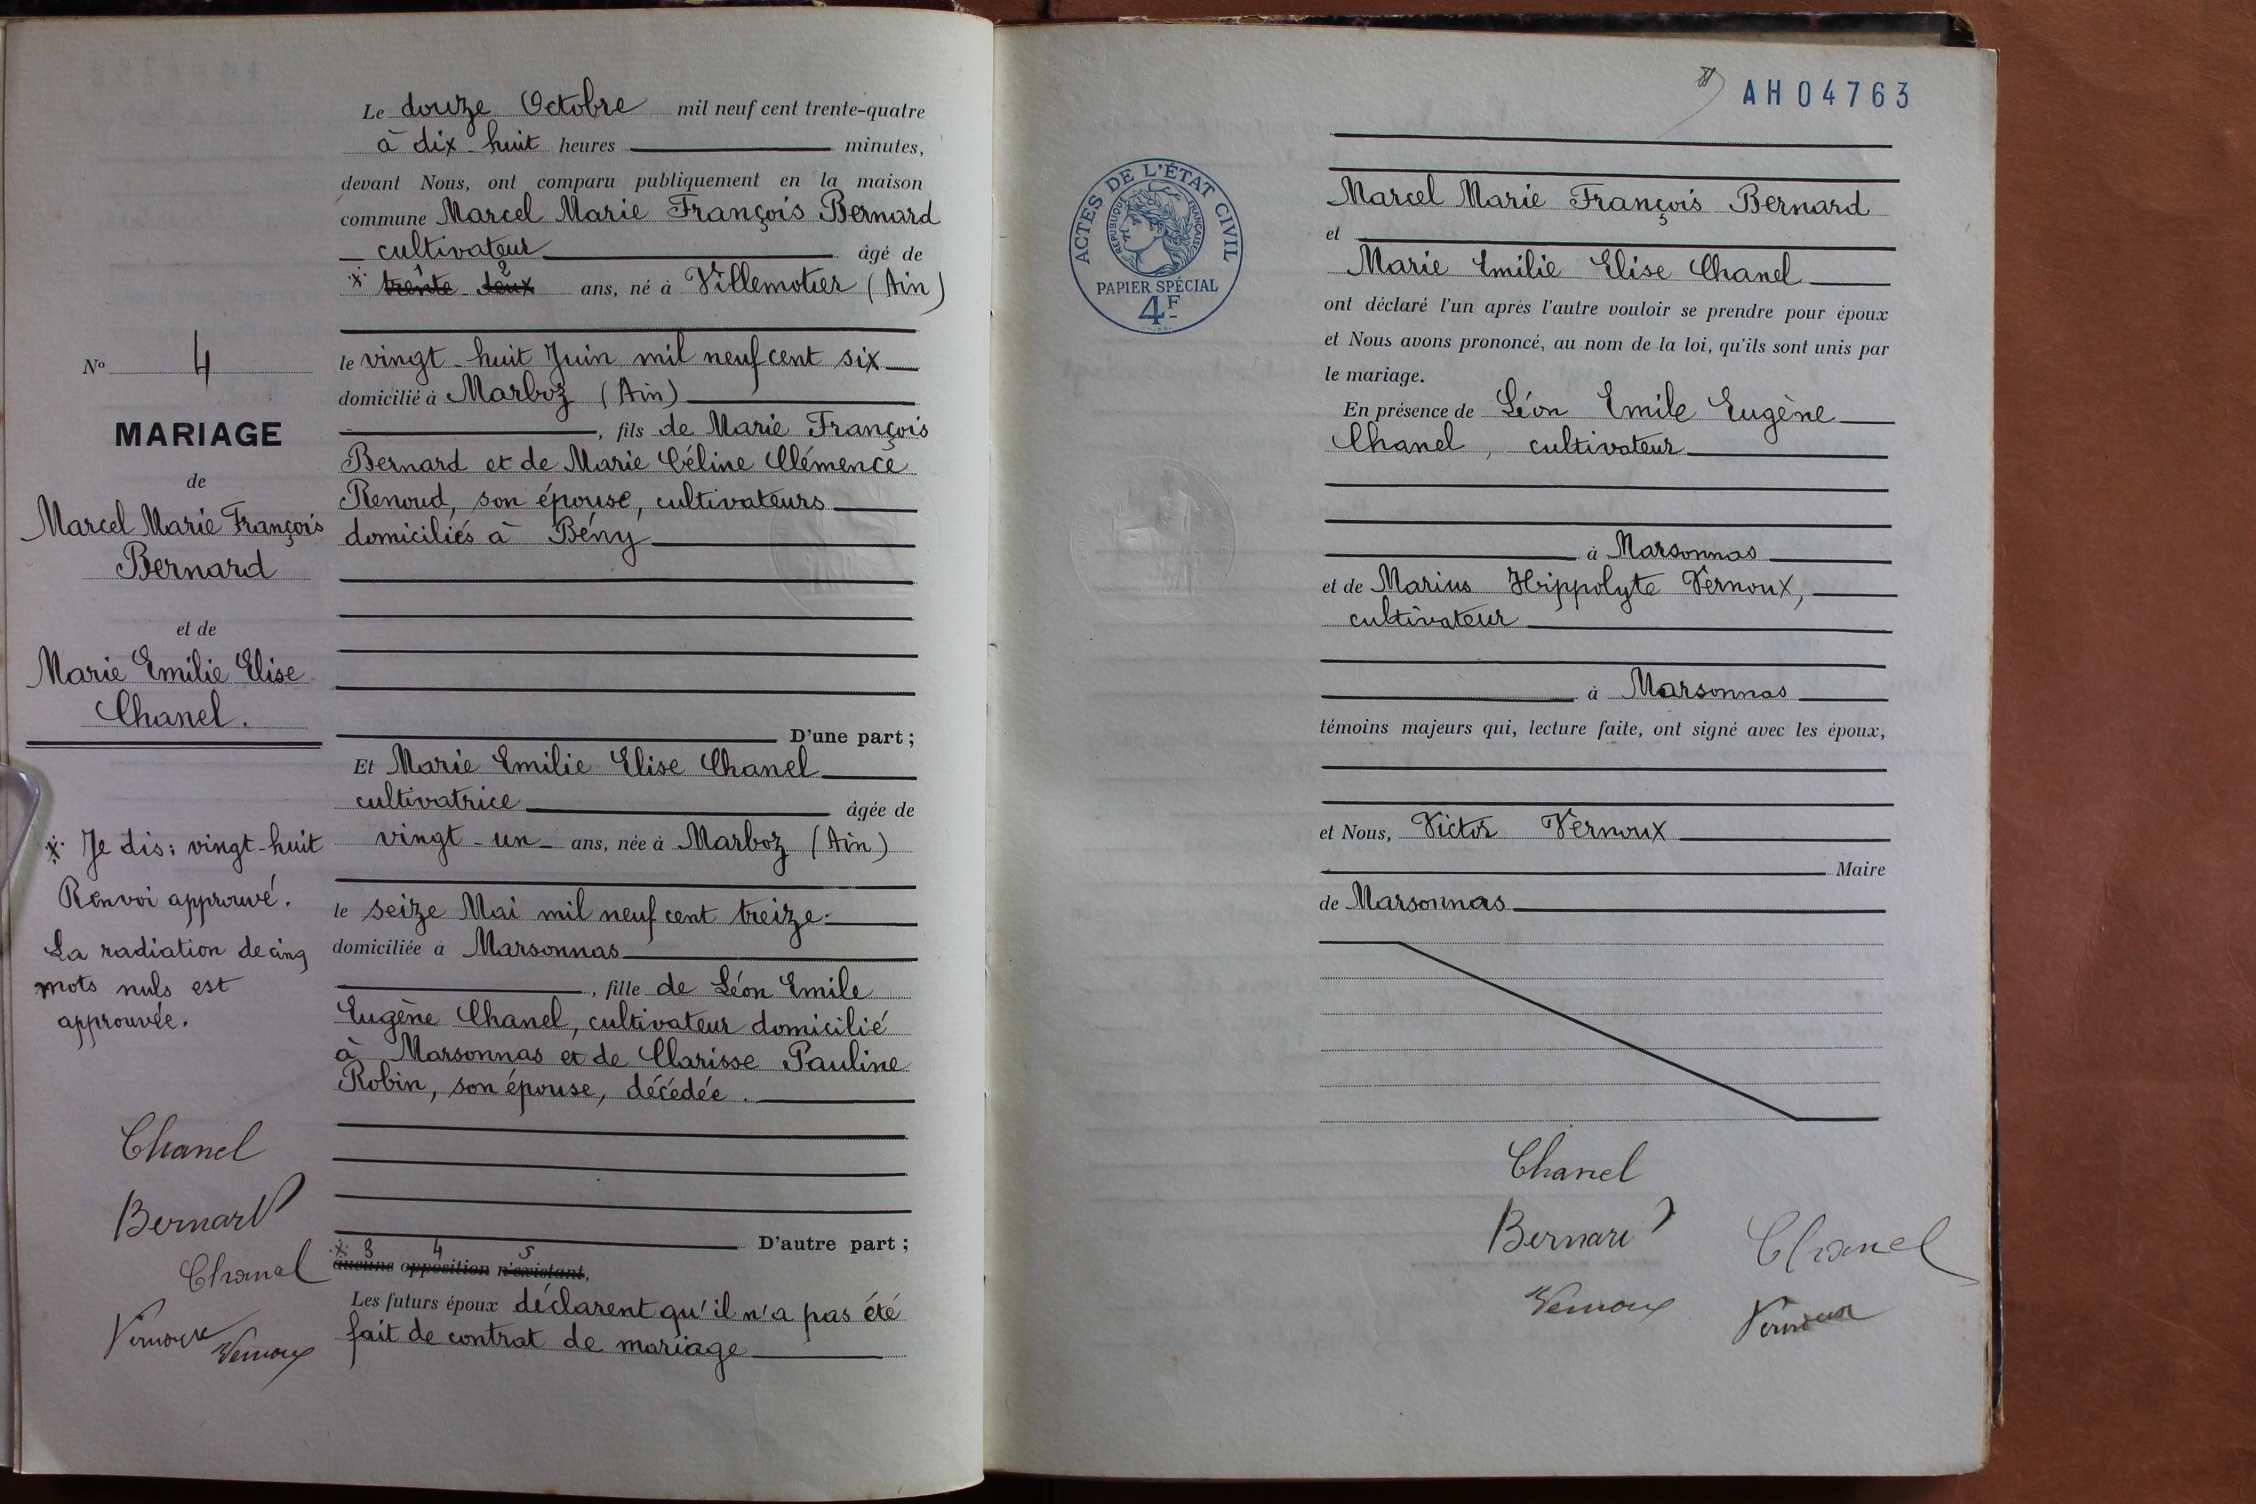 Le douze Octobre mil neuf cent trente-quatre
à dix-huit heures minutes,
devant Nous, ont comparu publiquement en la maison
commune Marcel Marie François Bernard
cultivateur âgé de
x trente deux ans, né à Villemotier (Ain)
le vingt-huit Juin mil neuf cent six
domicilié à Marboz (Ain)
, fils de Marie François
Bernard et de Marie Céline Clémence
Renoud, son épouse, cultivateurs
domiciliés à Bény
D'une part ;
Et Marie Emilie Elise Chanel
cultivatrice âgée de
vingt-un ans, née à Marboz (Ain)
le seize Mai mil neuf cent treize
domiciliée à Marsonnas
, fille de Léon Emile
Eugène Chanel, cultivateur domicilié
à Marsonnas et de Clarisse Pauline
Robin, son épouse, décédée.
D'autre part ;
x 3 4 5
aucune opposition n'existant,
Les futurs époux déclarent qu'il n'a pas été
fait de contrat de mariage
No 4
MARIAGE
de
Marcel Marie François
Bernard
et de
Marie Emilie Elise
Chanel.
x Je dis : vingt-huit
Renvoi approuvé.
La radiation de cinq
mots nuls est
approuvée.
Chanel
Bernard
Chanel
Vernoux
Vernoux
AH04763
ACTES DE L'ÉTAT CIVIL
RÉPUBLIQUE FRANÇAISE
PAPIER SPÉCIAL
4F
Marcel Marie François Bernard
et
Marie Emilie Elise Chanel
ont déclaré l'un après l'autre vouloir se prendre pour époux
et Nous avons prononcé, au nom de la loi, qu'ils sont unis par
le mariage.
En présence de Léon Emile Eugène
Chanel, cultivateur
à Marsonnas
et de Marius Hippolyte Vernoux,
cultivateur
à Marsonnas
témoins majeurs qui, lecture faite, ont signé avec les époux,
et Nous, Victor Vernoux
Maire
de Marsonnas
Chanel
Bernard
Chanel
Vernoux
Vernoux